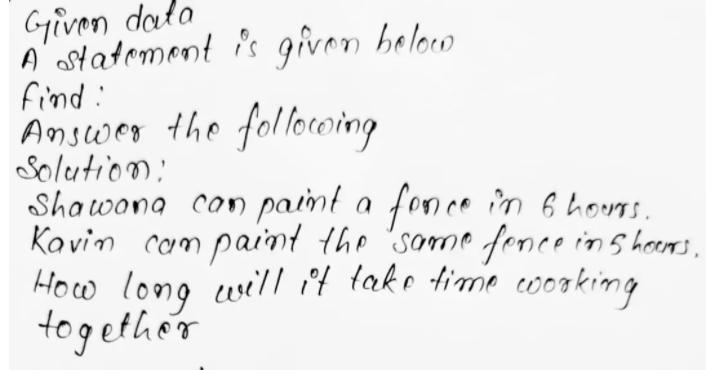 Given data
A statement is given below
find :
Answer the following
Solution:
Shawana can paint a fence in 6 hours.
Kavin can paint the same fence in 5 hours.
How long will it take time working
together